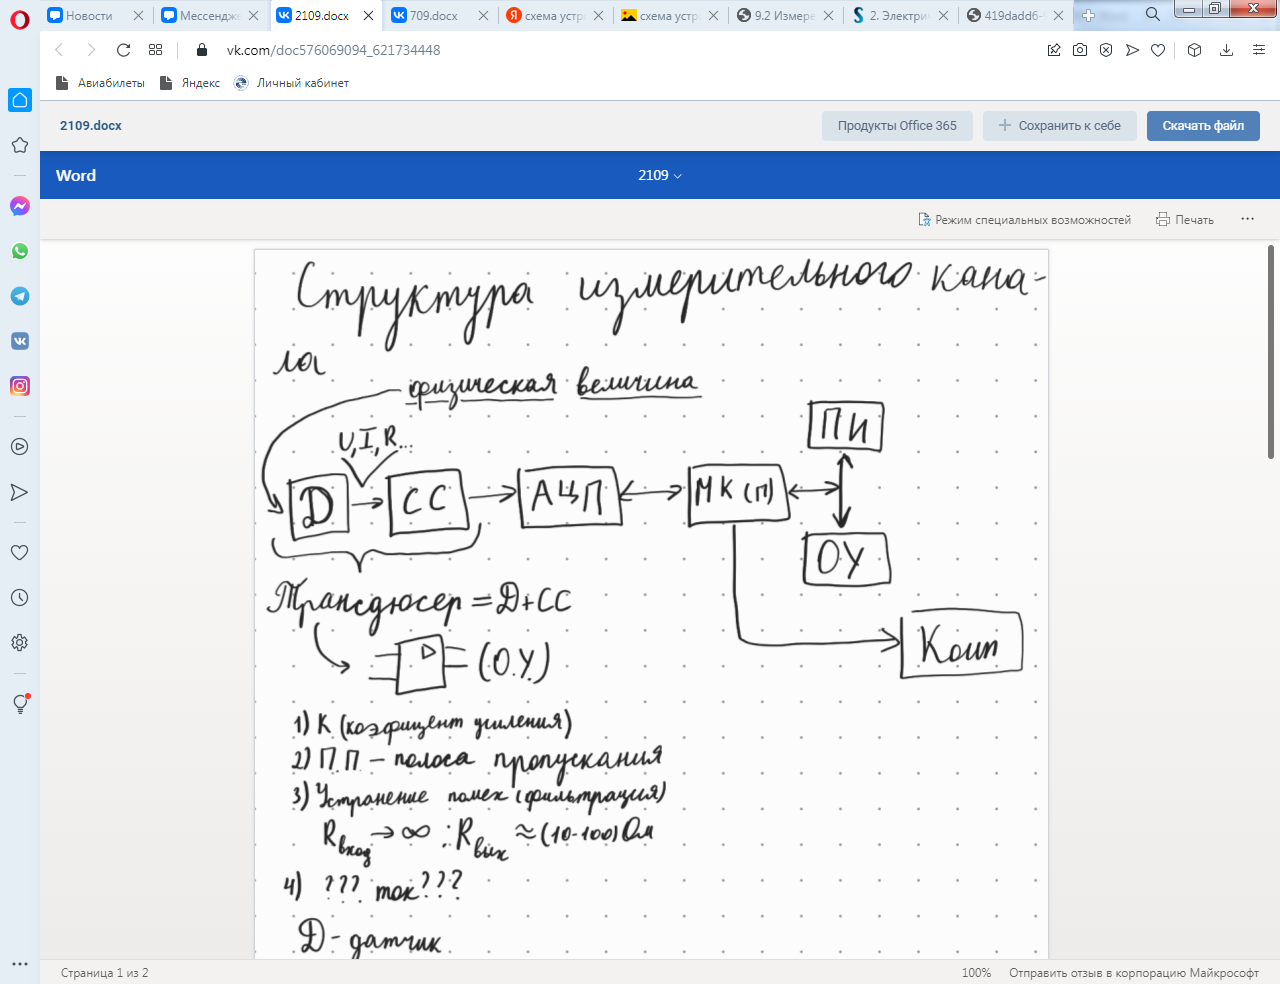 Новости
Мессендже
2109.docx
709.docx
схема устр
схема устр
9.2 Измере
2. Электрич
419dadd6-
vk.com/doc576069094_621734448
Авиабилеты
Яндекс
Личный кабинет
2109.docx
Продукты Office 365
Сохранить к себе
Скачать файл
Word
2109
Режим специальных возможностей
Печать
Структура измерительного кана-
ла
физическая величина
U, I, R...
ПИ
Д
СС
АЦП
МК(п)
ОУ
Трансдюсер = Д+СС
Комп
(О.У)
1) К (коэфицент усиления)
2) П.П – полоса пропускания
3) Устранение помех (фильтрация)
Rвход → ∞ ; Rвых ≈ (10-100) Ом
4) ??? ток???
Д - датчик
Страница 1 из 2
100%
Отправить отзыв в корпорацию Майкрософт